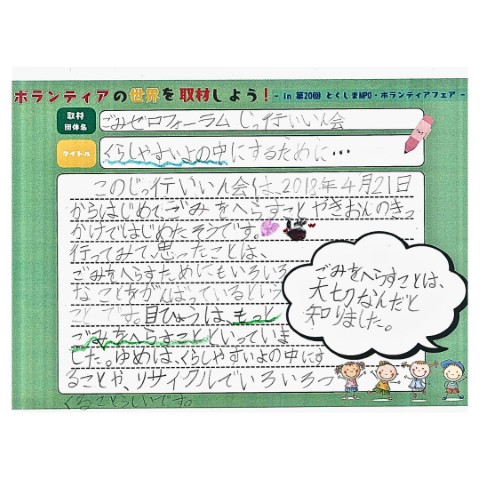 ボランティアの世界を取材しよう！- in 第20回 とくしまNPO・ボランティアフェア -
取材団体名
ごみゼロフォーラムじっ行いいん会
タイトル
くらしやすいよの中にするために・・・
このじっ行いいん会は、2018年4月21日
からはじめてごみをへらすことやきおんのきっ
かけではじめたそうです。
行ってみて思ったことは、
ごみをへらすためにもいろいろ
なことをがんばっているという
ことです。目ひょうは、もっと
ごみをへらすことといっていま
した。ゆめは、くらしやすいよの中にす
ることや、リサイクルでいろいろつ
くることらしいです。
ごみをへらすことは、
大切なんだと
知りました。